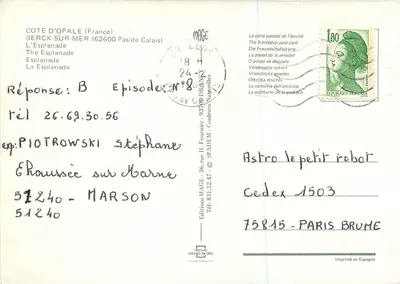 COTE D'OPALE (France)
BERCK-SUR-MER (62600 Pas de Calais)
L'Esplanade
The Esplanade
Esplanade
La Esplanade
MAGE
18 H
24-2
La carte postale de l'amitié
The friendship post card
Die Freundschaftskarte
La postal de la amistad
O postal da amizade
Vriendschapskaart
La cartolina dell'amicizia
1,80
Réponse: B Episode: N°8
tél 26.69.30.56
exp: PIOTROWSKI Stéphane
Chaussée sur Marne
51240 - MARSON
51240
Editions MAGE - 36, rue H. Fournier - 93
Tél: 831.52.47 - © SPADEM -
Astro le petit robot
Cedex 1503
75815 - PARIS BRUNE
Imprimé en Espagne